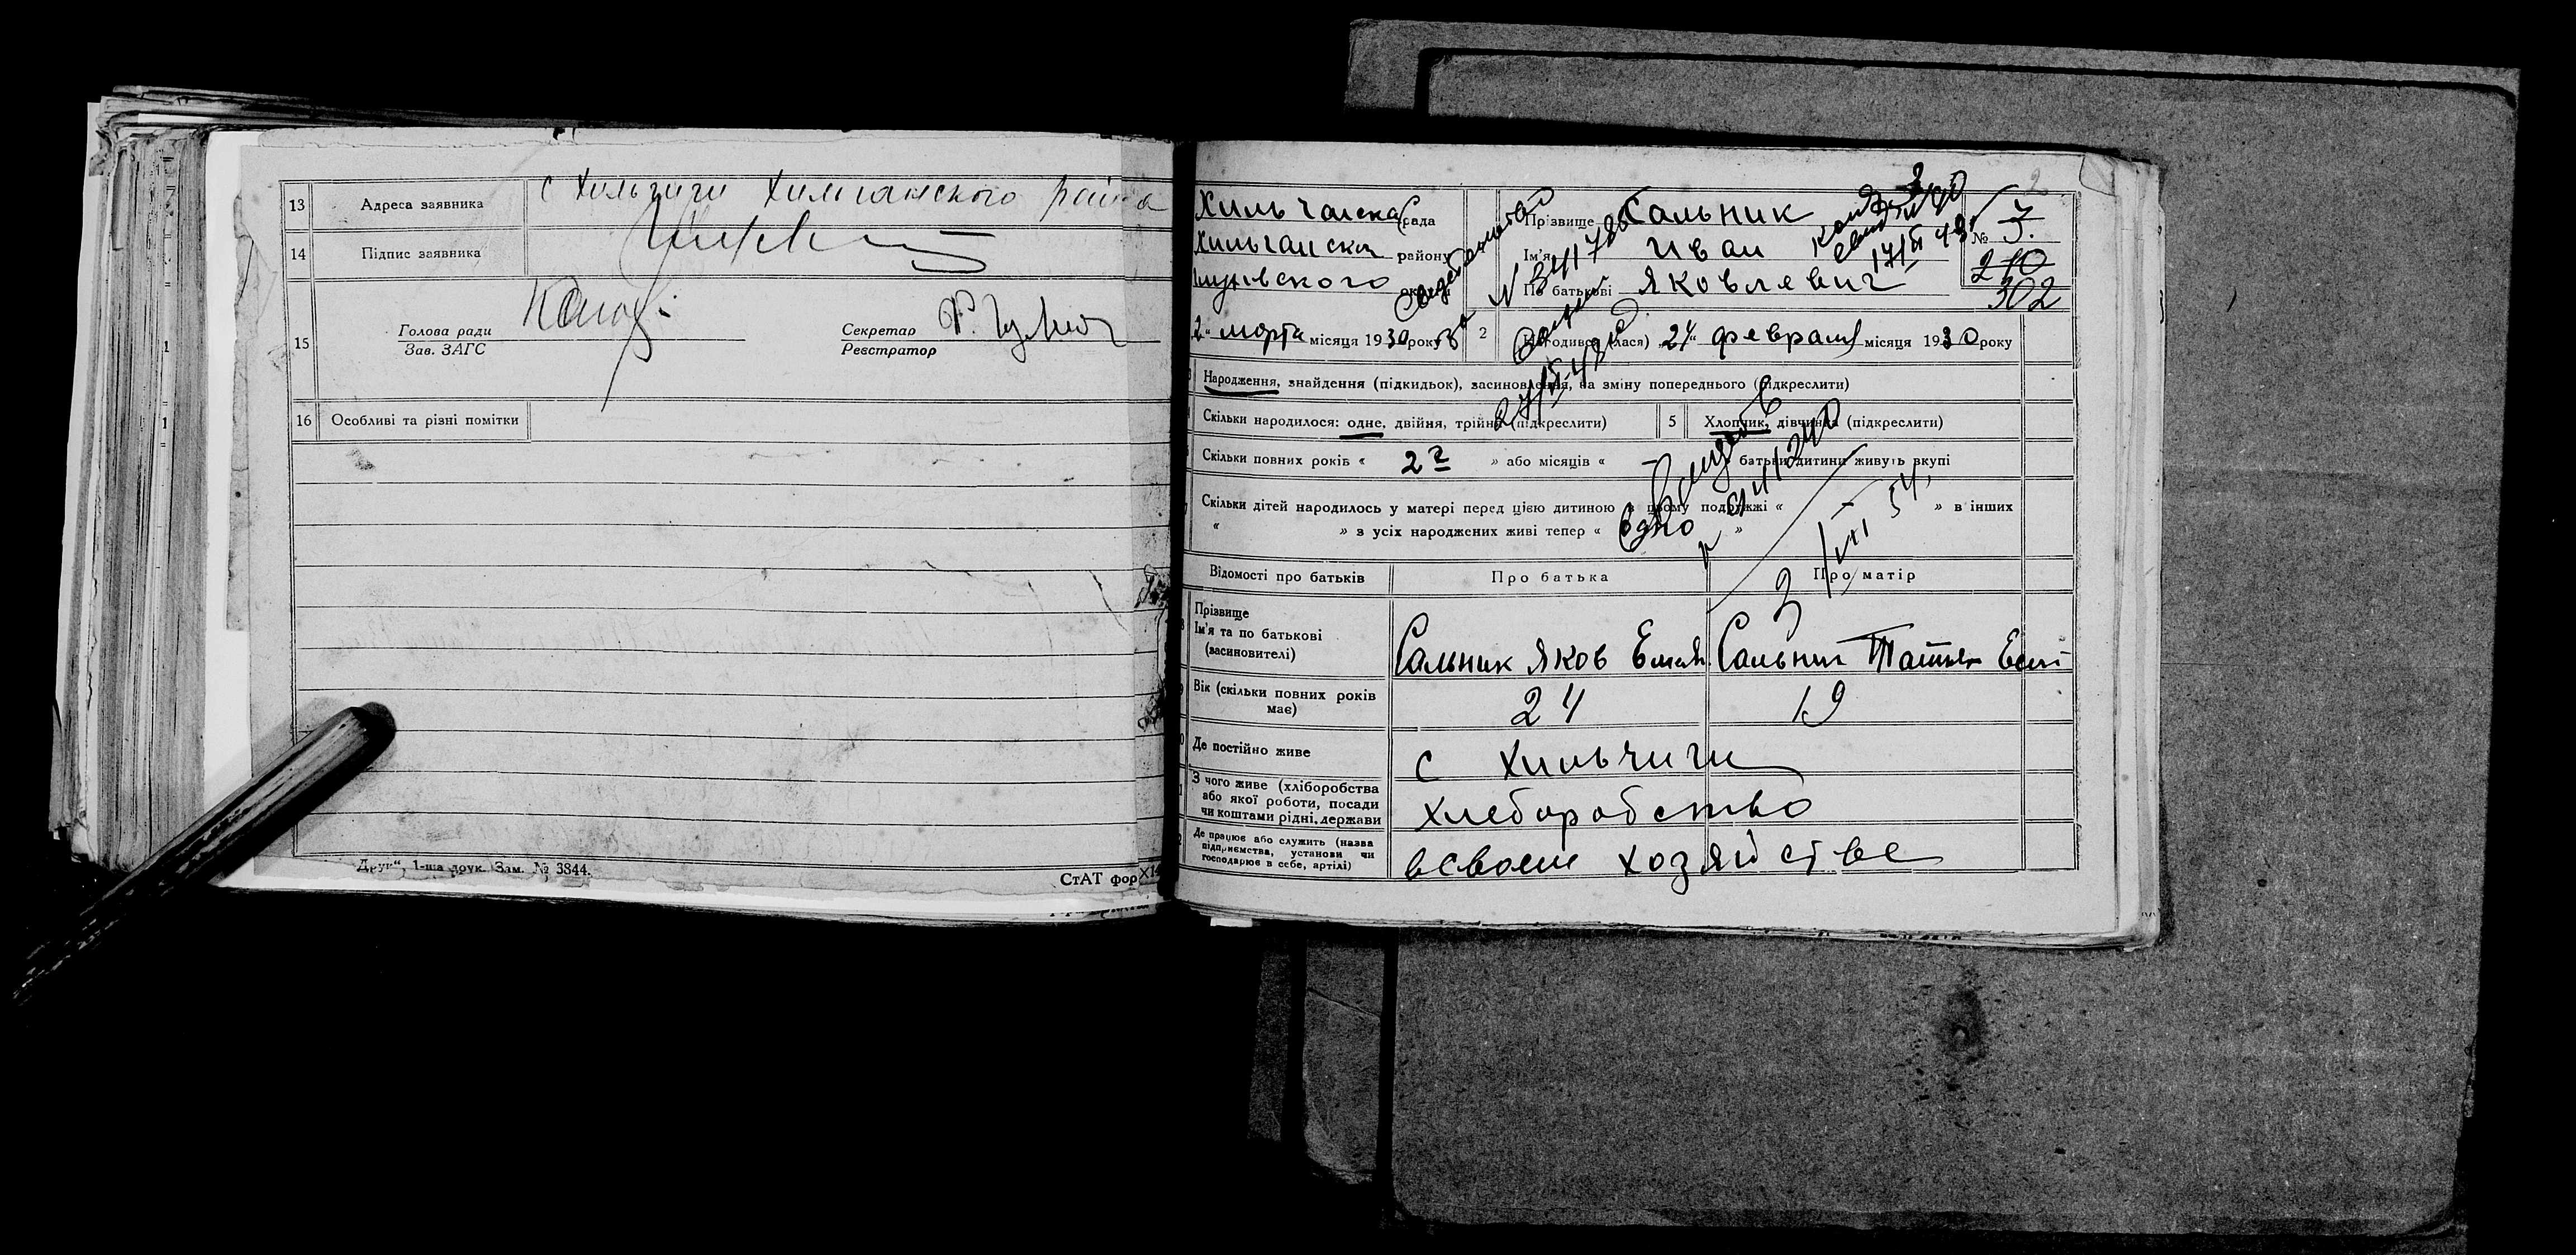 13 Адреса заявника с Хильчичи района
14 Підпис заявника
15 Голова ради
Зав. ЗАГС
Секретар
Реєстратор
16 Особливі та різні помітки
Друк“, 1-ша друк. Зам. № 3844.
СтАТ фор
2
рада
району
Прізвище Сальник
Ім'я Иван
По батькові Яковлевич
№ 7
3.
210
302
2“ марта місяця 1930 року
2 Народився (лася) „24“ февраля місяця 1930 року
Народження, знайдення (підкидьок), засиновлення, на зміну попереднього (підкреслити)
Скільки народилося: одне, двійня, трійня (підкреслити)
5 Хлопчик, дівчинка (підкреслити)
Скільки повних років « 2 г » або місяців « — » батьки дитини живуть вкупі
Скільки дітей народилось у матері перед цією дитиною в цьому подружжі « — » в інших
« » з усіх народжених живі тепер « Одно »
Відомості про батьків Про батька Про матір
Прізвище
Ім'я та по батькові
(васиновителі)
Сальник Яков Емел. Сальник
Вік (скільки повних років
має)
24 19
Де постійно живе с Хильчичи
З чого живе (хліборобства
або якої роботи, посади
чи коштами рідні, держави
хлеборобство
Де працює або служить (назва
підприємства, установи чи
господарює в себе, артілі)
в своем хозяйстве